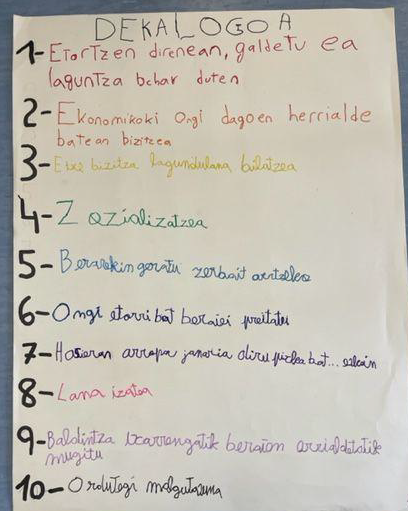 DEKALOGOA
1- Etortzen direnean, galdetu ea
laguntza behar duten
2- Ekonomikoki ongi dagoen herrialde
batean bizitzea
3- Etxe bizitza lagundulana bilatzea
4- Zozializatzea
5- Beraiekin geratu zerbait
6- Ongi etorri bat beraiei
7- Hasieran arropa janaria diru pixka bat...
8- Lana izatea
9- Baldintza txarrengatik beraien
mugitu
10- Ordutegi malgutasuna